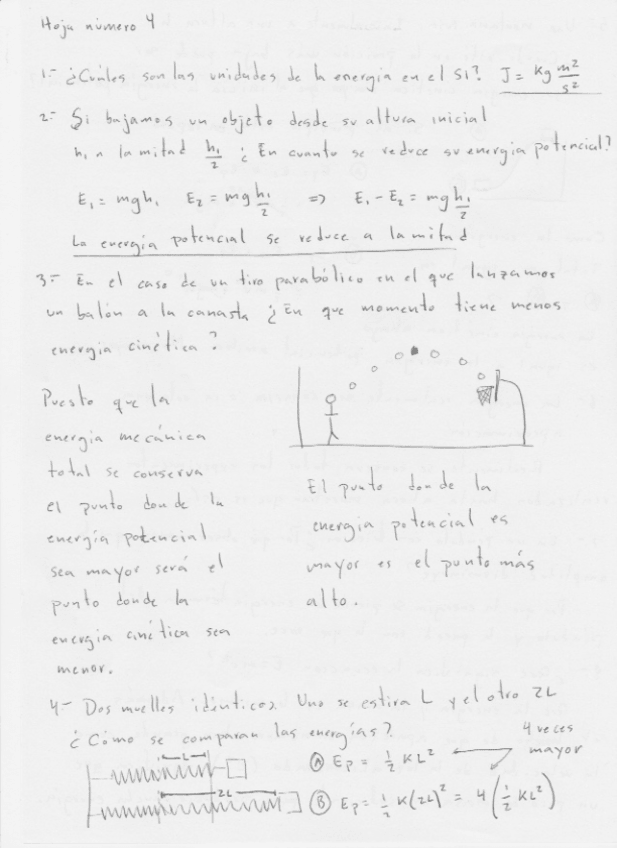 Hoja número 4
1.- ¿Cuáles son las unidades de la energía en el SI? J = Kg m²/s²
2.- Si bajamos un objeto desde su altura inicial
h₁ a la mitad h₁/2 ¿En cuanto se reduce su energía potencial?
E₁ = mgh₁ E₂ = mg h₁/2 => E₁ - E₂ = mg h₁/2
La energía potencial se reduce a la mitad
3.- En el caso de un tiro parabólico en el que lanzamos
un balón a la canasta ¿En que momento tiene menos
energía cinética?
Puesto que la
energia mecánica
total se conserva
el punto donde la
energía potencial
sea mayor será el
punto donde la
energia cinética sea
menor.
El punto donde la
energia potencial es
mayor es el punto más
alto.
4- Dos muelles idénticos. Uno se estira L y el otro 2L
¿Cómo se comparan las energías?
L
2L
A Ep = 1/2 KL²
B Ep = 1/2 K(2L)² = 4(1/2 KL²)
4 veces
mayor